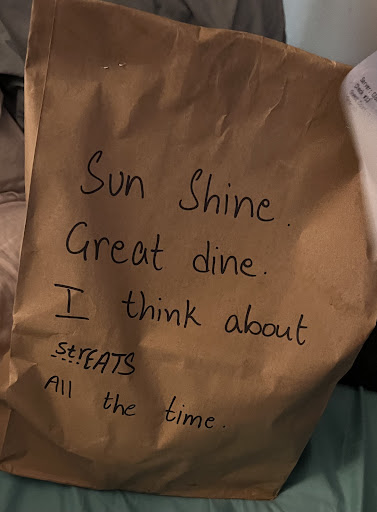 Sun Shine.
Great dine.
I think about
strEATS
All the time.